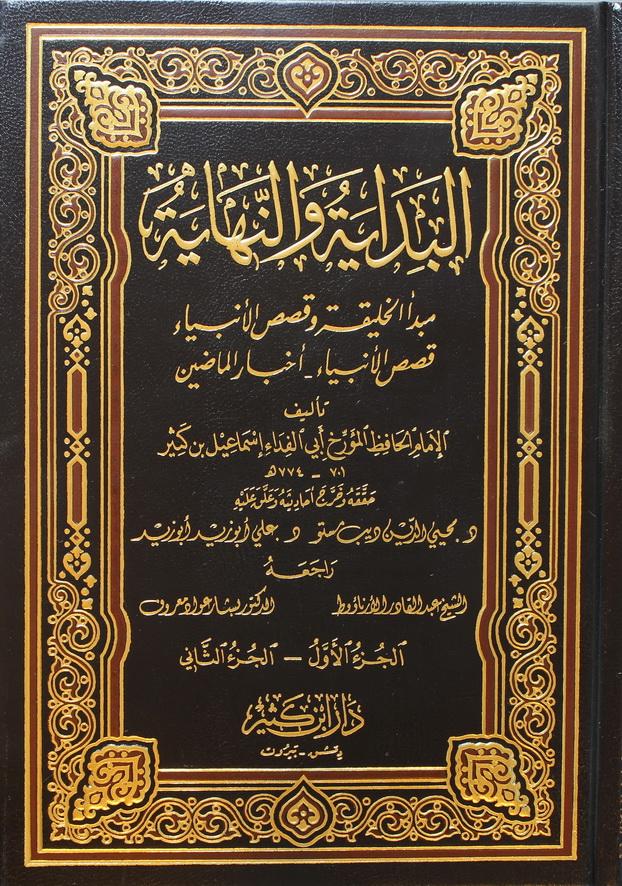 البَدايَة وَالنّهاية
مبدأ الخليقة وقصص الأنبياء
قصص الأنبياء - أخبار الماضين
تأليف
الإمَام الحَافِظ المُؤرّخ أَبي الفِدَاء إسْمَاعِيل بن كَثير
٧٠١ - ٧٧٤ هـ
حَقّقَهُ وَخَرّجَ أحَاديثَهُ وَعَلّقَ عَلَيْهِ
د. محيي الدّين ديب مستو د. علي أبو زيد أبو زيد
رَاجَعَهُ
الشيخ عبد القادر الأرناؤوط الدكتور بشار عواد معروف
الجُزءُ الأَوّلُ – الجُزءُ الثّاني
دَارُ ابْن كَثير
دمشق - بيروت